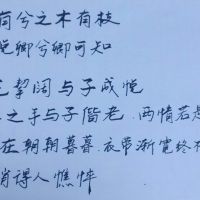 有兮之木有枝
悦卿兮卿可知
挈阔与子成悦
之手与子偕老.两情若是
在朝朝暮暮.衣带渐宽终不
消得人憔悴